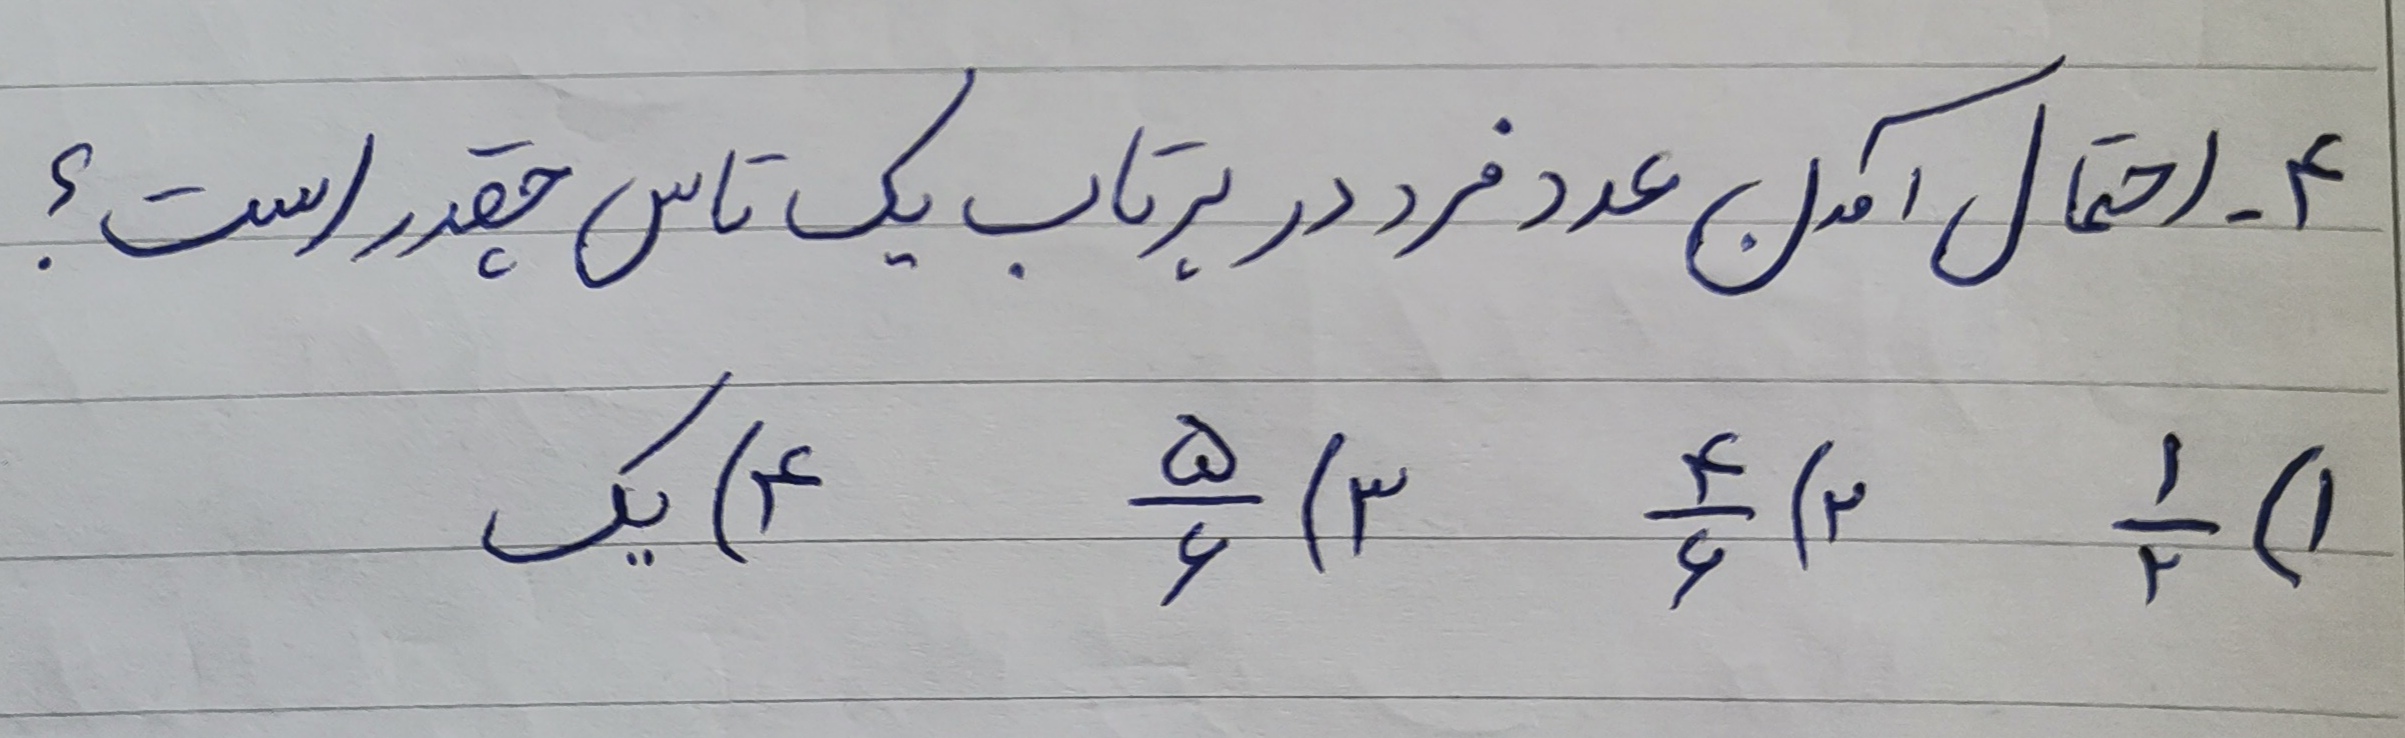 ۴- احتمال آمدن عدد فرد در پرتاب یک تاس چقدر است؟
۱) ۱/۲ ۲) ۴/۶ ۳) ۵/۶ ۴) یک